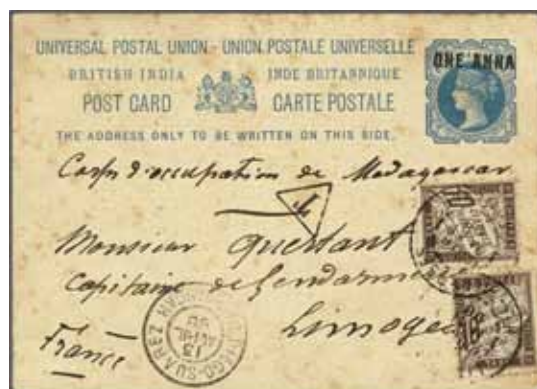 UNIVERSAL POSTAL UNION - UNION POSTALE UNIVERSELLE
BRITISH INDIA INDE BRITANNIQUE
POST CARD CARTE POSTALE
THE ADDRESS ONLY TO BE WRITTEN ON THIS SIDE.
ONE ANNA
Corps d'occupation de Madagascar
T
Monsieur
Capitaine de Gendarmerie
Limoges
France
DIEGO-SUAREZ
13